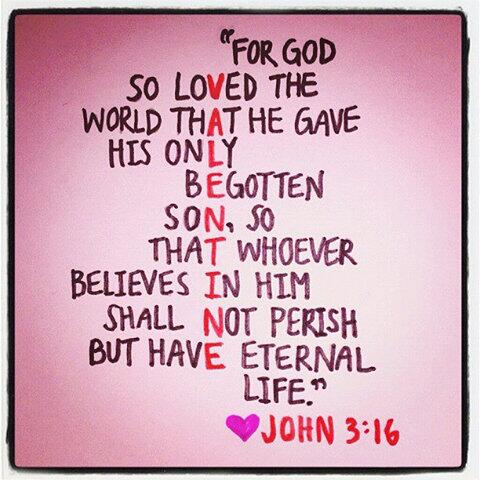 "FOR GOD
SO LOVED THE
WORLD THAT HE GAVE
HIS ONLY
BEGOTTEN
SON, SO
THAT WHOEVER
BELIEVES IN HIM
SHALL NOT PERISH
BUT HAVE ETERNAL
LIFE."
JOHN 3:16